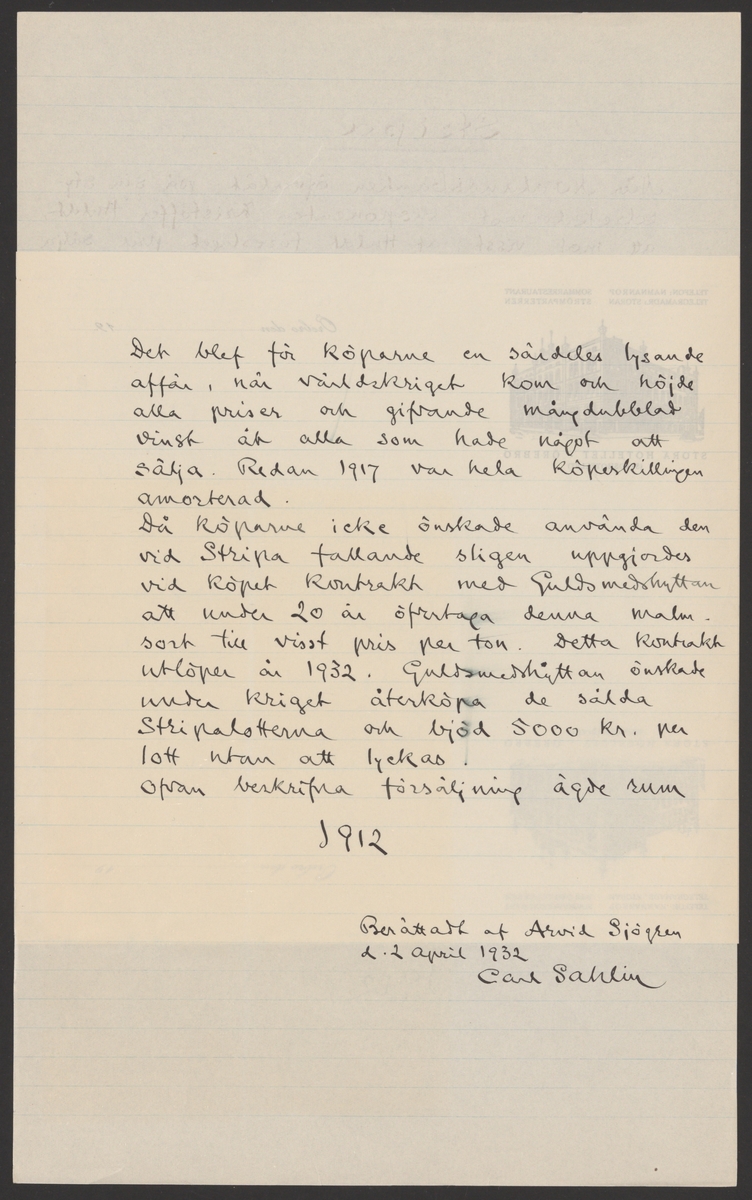 Det blef för köparne en särdeles lysande
affär, när världskriget kom och höjde
alla priser och gifvande mångdubblad
vinst åt alla som hade något att
sälja. Redan 1917 var hela köpeskillingen
amorterad.
Då köparne icke önskade använda den
vid Stripa fallande sligen uppgjordes
vid köpet kontrakt med Guldsmedshyttan
att under 20 år öfvertaga denna malm-
sort till visst pris per ton. Detta kontrakt
utlöper år 1932. Guldsmedshyttan önskade
under kriget återköpa de sålda
Stripalotterna och bjöd 5000 kr. per
lott utan att lyckas.
Ofvan beskrifna försäljning ägde rum
1912
Berättadt af Arvid Sjögren
d. 2 april 1932
Carl Sahlin